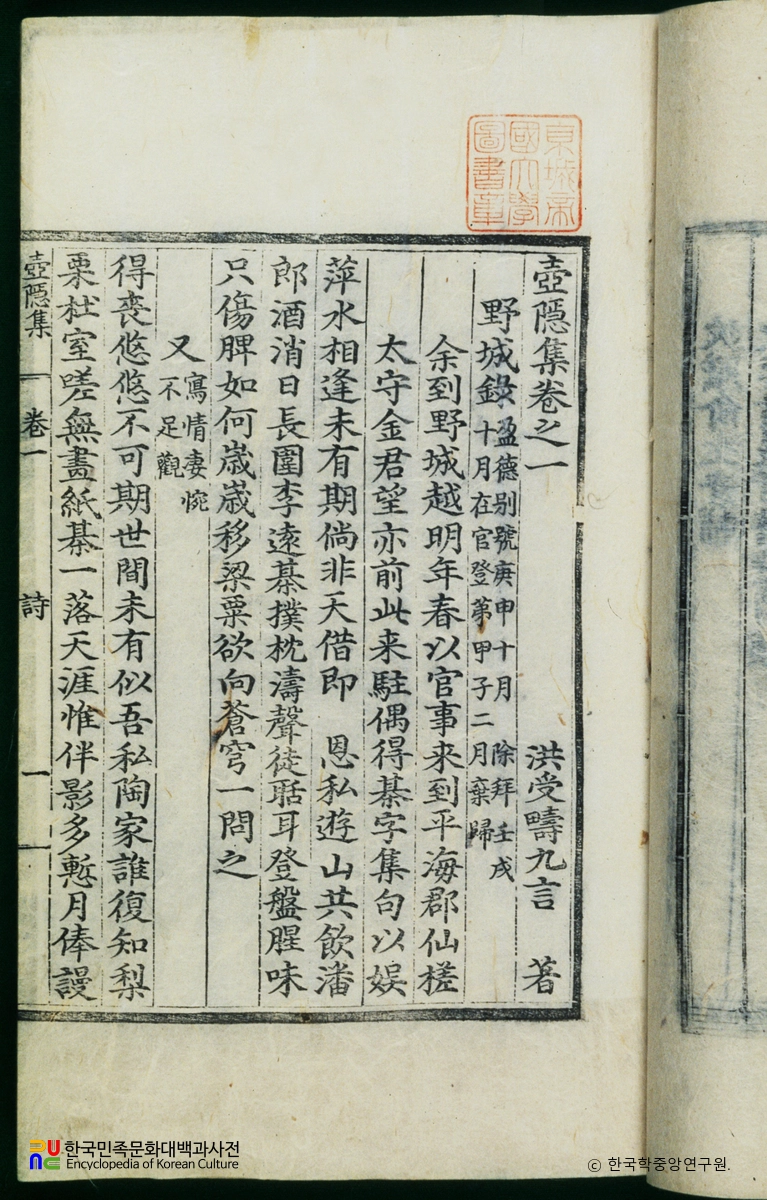 壺隱集卷之一
洪受疇九言 著
野城錄 盈德別號庚申十月 除拜壬戌
十月在官登第甲子二月棄歸
余到野城越明年春以官事来到平海郡仙槎
太守金君望亦前此来駐偶得棊字集句以娛
萍水相逢未有期倘非天借即 恩私遊山共飮潘
郎酒消日長圍李遠棊撲枕濤聲徒聒耳登盤腥味
只傷脾如何歲歲移梁粟欲向蒼穹一問之
又 寫情悽惋
不足觀
得喪悠悠不可期世間未有似吾私陶家誰復知梨
栗杜室嗟無畫紙棊一落天涯惟伴影多慙月俸謾
壺隱集 卷一 詩 一
東城帝
國大學
圖書章
한국민족문화대백과사전
Encyclopedia of Korean Culture
© 한국학중앙연구원.